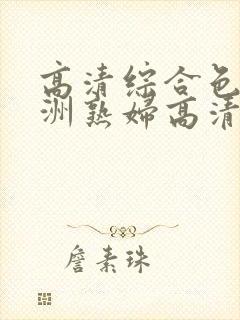 高清綜合色
洲熟婦高清
詹素珠